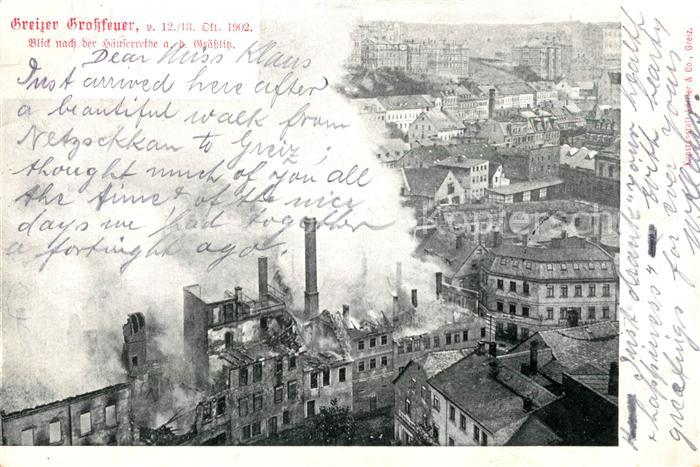 Greizer Großfeuer, v. 12./13. Okt. 1902.
Blick nach der Häuserreihe a. d. Gräßlitz.
Dear Miss Klaus
Just arrived here after
a beautiful walk from
Netzschkau to Greiz;
thought much of you all
the time & of the nice
days we had together
a fortnight ago.
Just drank "your health
& happiness" with hearty
greetings for ever yours
& Co., Greiz.